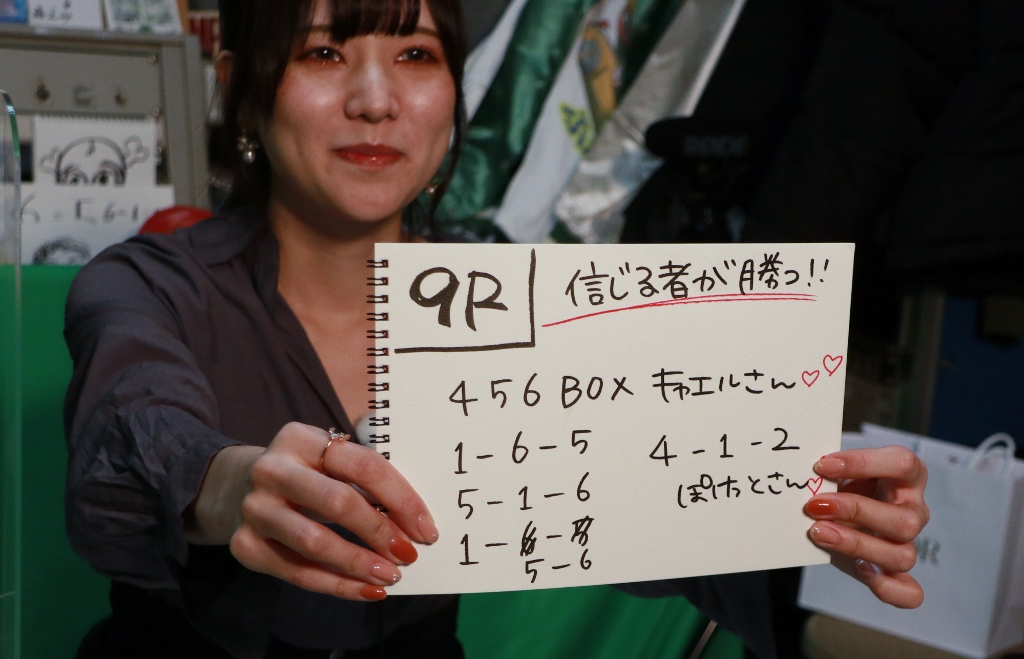 9R
信じる者が勝つ!!
456 BOX キャエルさん♡♡
1-6-5
4-1-2
5-1-6
ぽけっとさん♡
1-
5-6